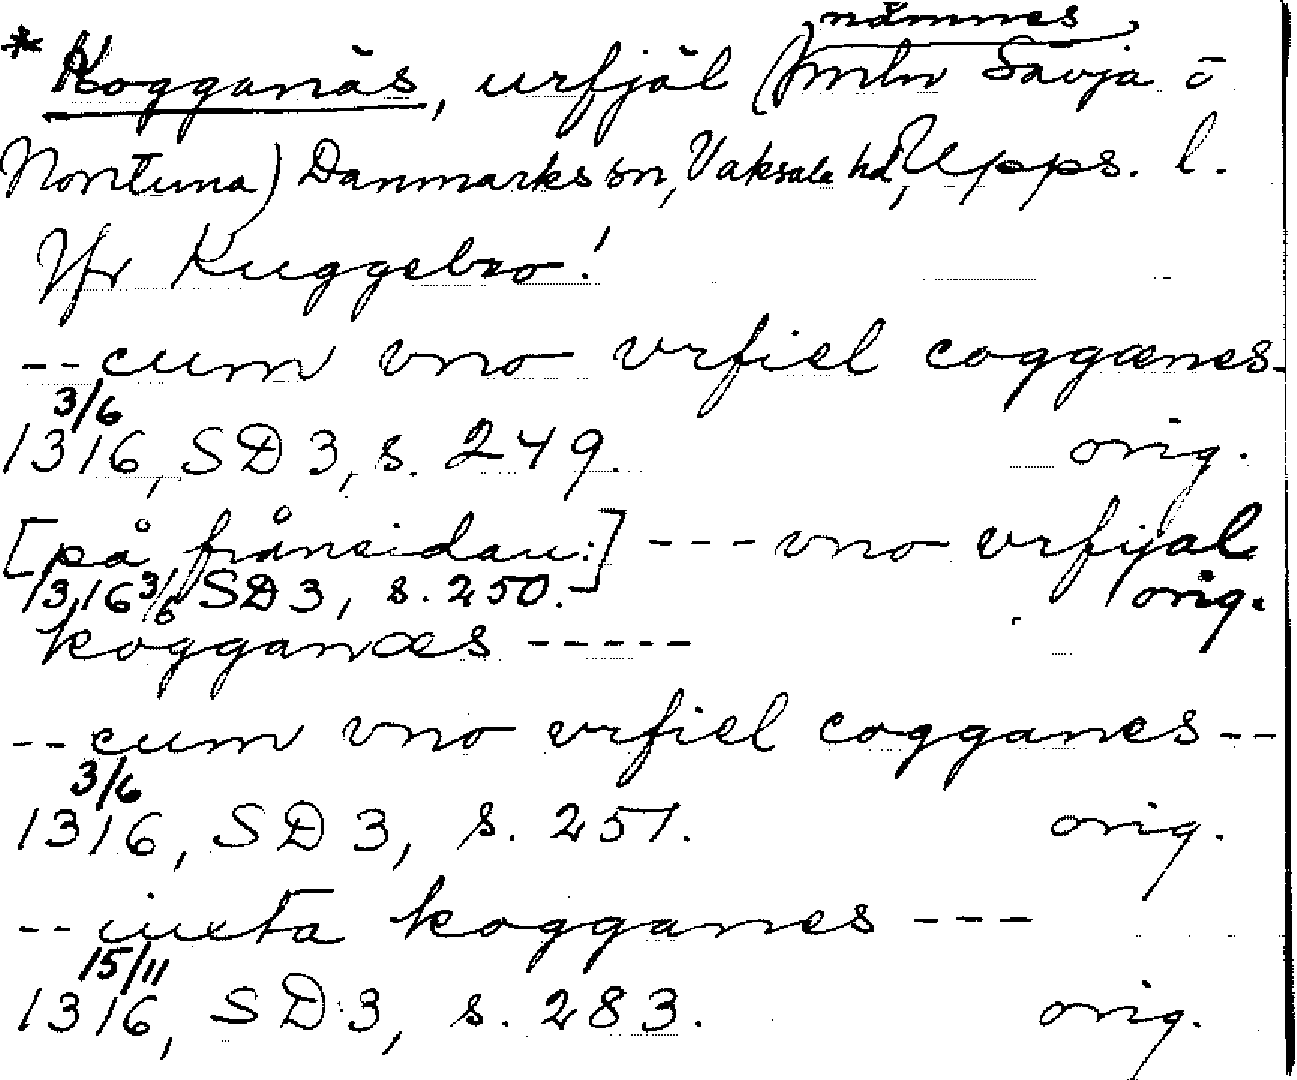 nämnes
* Kogganäs, urfjäl (jmlw Sävja o
Norrtuna) Danmarks sn, Vaksala hd, Upps. l.
Jfr Kuggebro!
--cum vno vrfiel coggænes-
3/6
1316, SD 3, s. 249. orig.
[på frånsidan:] --- vno vrfijal
1316 3/6 SD 3, s. 250. orig.
kogganæs -----
--cum vno vrfiel cogganes--
3/6
1316, SD 3, s. 251. orig.
--iuxta kogganes ---
15/11
1316, SD 3, s. 283. orig.